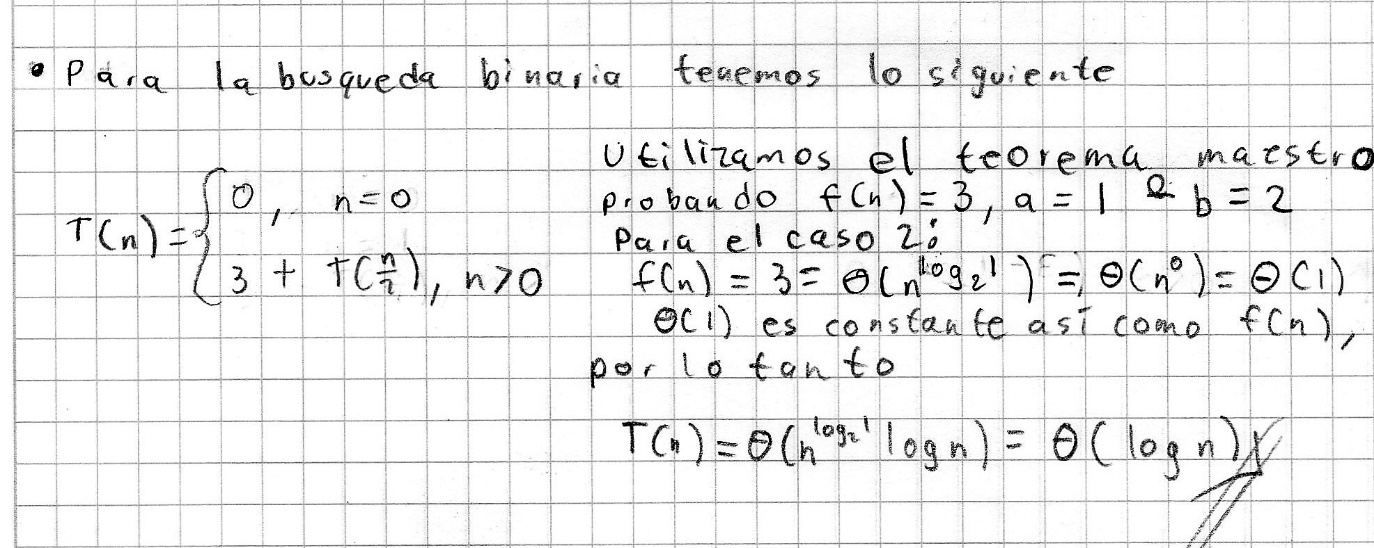 • Para la busqueda binaria tenemos lo siguiente
T(n) = { 0, n=0
3 + T(n/2), n>0
Utilizamos el teorema maestro
probando f(n) = 3, a = 1 & b = 2
Para el caso 2:
f(n) = 3 = Θ(n^log₂1) = Θ(n⁰) = Θ(1)
Θ(1) es constante así como f(n),
por lo tanto
T(n) = Θ(n^log₂1 log n) = Θ(log n)